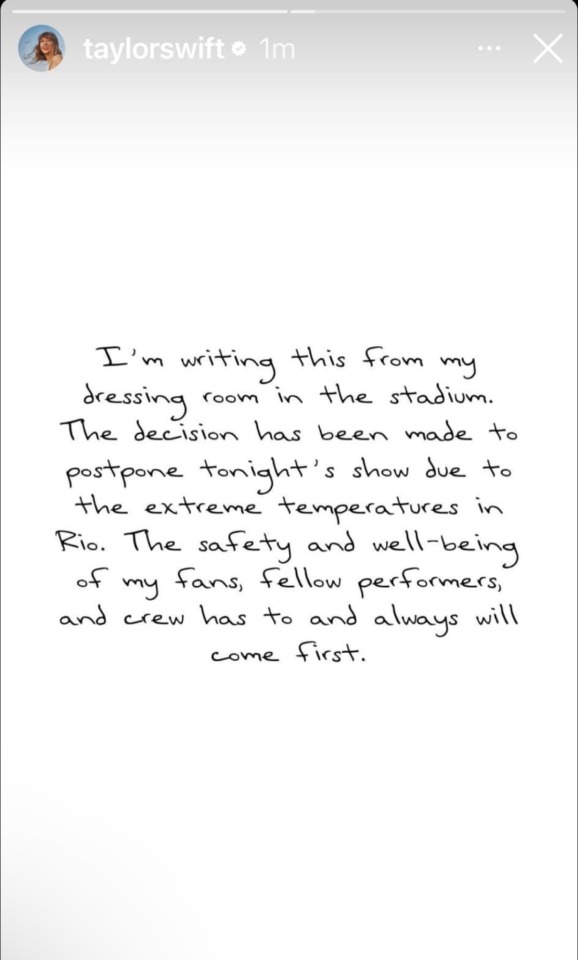 taylorswift 1m
I'm writing this from my
dressing room in the stadium.
The decision has been made to
postpone tonight's show due to
the extreme temperatures in
Rio. The safety and well-being
of my fans, fellow performers,
and crew has to and always will
come first.